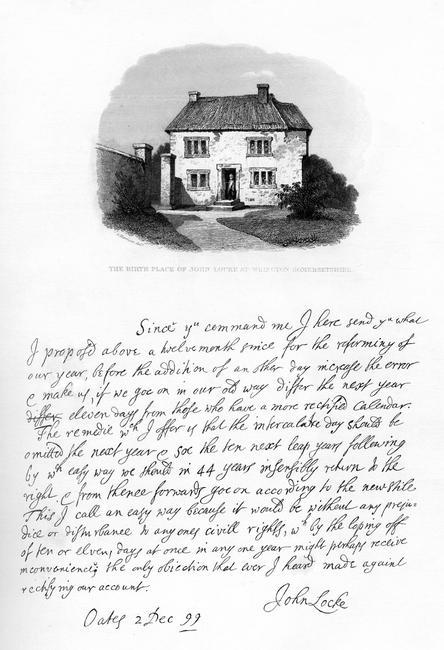 THE BIRTH PLACE OF JOHN LOCKE AT WRINGTON SOMERSETSHIRE.
Since yu command me I here send yu what
I propos'd above a twelvemonth since for the reforming of
our year, before the addition of an other day increase the error
& make us, if we goe on in our old way differ the next year
differ eleven days from those who have a more rectified Calendar.
The remedie wch I offer is that the intercalate day should be
omitted the next year & soe the ten next leap years following
by wch easy way we should in 44 years insensibly return to the
right & from thence forwards goe on according to the new stile
This I call an easy way because it would be without any preju-
dice or disturbance to any ones civill rights, wch by the loping off
of ten or eleven days at once in any one year might perhaps receive
inconvenience, the only objection that ever I heard made against
rectifying our account.
John Locke
Oates 2 Dec 99